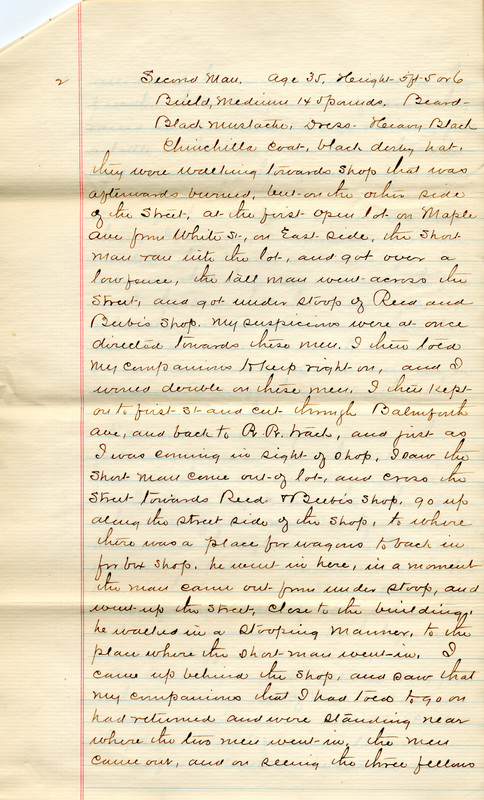 2
Second Man. Age 35. Height 5ft 5 or 6
Build, Medium 145 pounds. Beard-
Black Mustache, Dress- Heavy Black
Chinchilla coat, black derby hat.
they were walking towards shop that was
afterwards burned, but on the other side
of the Street, at the first open lot on Maple
ave from White St, on East side, the Short
man ran into the lot, and got over a
low fence, the tall man went across the
Street, and got under stoop of Reed and
Beebis Shop. My suspicions were at once
directed towards these men. I then told
my companions to keep right on, and I
would double on these men. I then kept
on to first St and cut through Balmforth
ave, and back to R.R. track, and just as
I was coming in sight of shop, I saw the
Short man come out of lot, and cross the
Street towards Reed & Beebis Shop, go up
along the street side of the shop, to where
there was a place for wagons to back in
for box shop, he went in here, in a moment
the man came out from under stoop, and
went up the street, close to the building,
he walked in a stooping manner, to the
place where the short man went in. I
came up behind the shop, and saw that
my companions that I had told to go on
had returned and were standing near
where the two men went in, the men
came out, and on seeing the three fellows